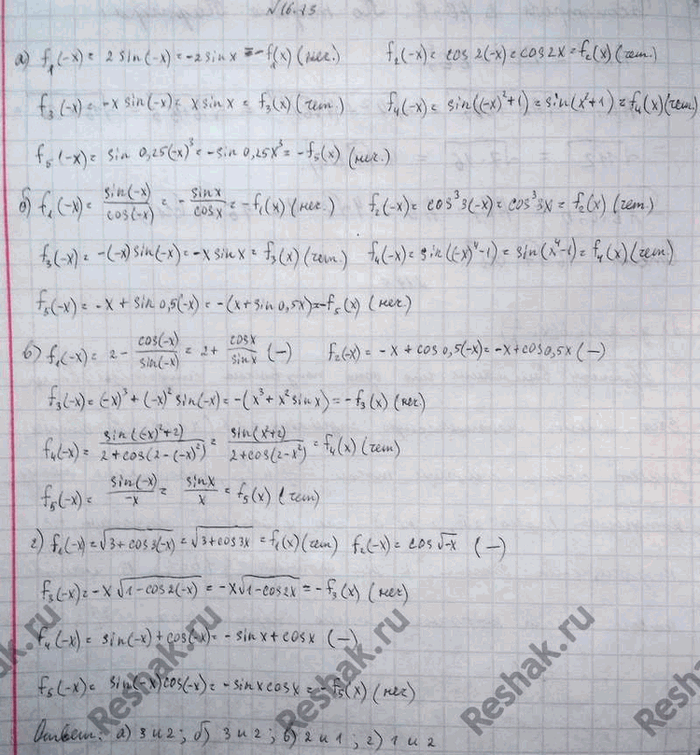 №16.13
а) f₁(-x) = 2 sin(-x) = -2 sin x = -f₁(x) (неч.) f₂(-x) = cos 2(-x) = cos 2x = f₂(x) (чет.)
f₃(-x) = -x sin(-x) = x sin x = f₃(x) (чет.) f₄(-x) = sin((-x)²+1) = sin(x²+1) = f₄(x) (чет.)
f₅(-x) = sin 0,25(-x)³ = -sin 0,25x³ = -f₅(x) (неч.)
б) f₁(-x) = sin(-x)/cos(-x) = - sin x/cos x = -f₁(x) (неч.) f₂(-x) = cos³3(-x) = cos³3x = f₂(x) (чет.)
f₃(-x) = -(-x) sin(-x) = -x sin x = f₃(x) (чет) f₄(-x) = sin((-x)⁴-1) = sin(x⁴-1) = f₄(x) (чет)
f₅(-x) = -x + sin 0,5(-x) = -(x + sin 0,5x) = -f₅(x) (неч)
в) f₁(-x) = 2 - cos(-x)/sin(-x) = 2 + cos x/sin x (-) f₂(-x) = -x + cos 0,5(-x) = -x + cos 0,5x (-)
f₃(-x) = (-x)³ + (-x)² sin(-x) = -(x³ + x² sin x) = -f₃(x) (неч)
f₄(-x) = sin((-x)²+2)/2+cos(2-(-x)²) = sin(x²+2)/2+cos(2-x²) = f₄(x) (чет)
f₅(-x) = sin(-x)/-x = sin x/x = f₅(x) (чет)
г) f₁(-x) = √3+cos3(-x) = √3+cos3x = f₁(x) (чет) f₂(-x) = cos √-x (-)
f₃(-x) = -x √1-cos2(-x) = -x √1-cos2x = -f₃(x) (неч)
f₄(-x) = sin(-x) + cos(-x) = -sin x + cos x (-)
f₅(-x) = sin(-x) cos(-x) = -sin x cos x = -f₅(x) (неч)
Ответ: а) 3 и 2; б) 3 и 2; в) 2 и 1; г) 1 и 2
Reshak.ru
Reshak.ru
Reshak.ru
Reshak.ru